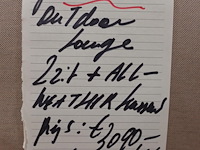 Outdoor
Lounge
2zit + ALL-
WEATHER kussens
prijs: € 3090,-